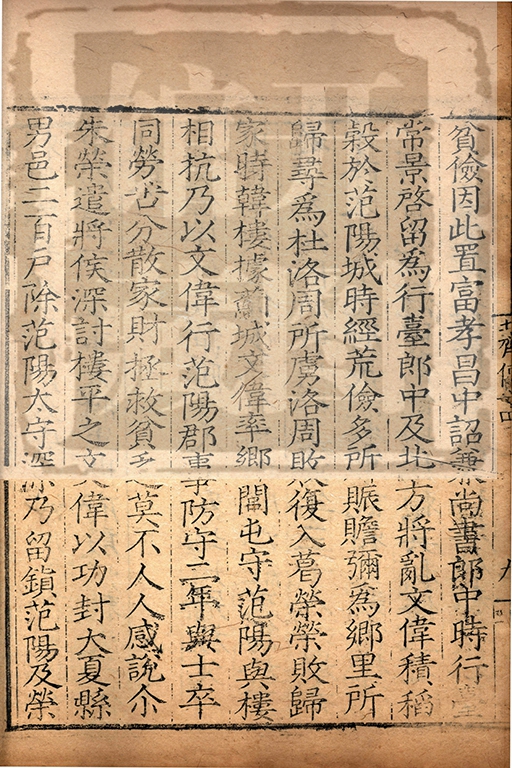 貧儉因此置富孝昌中詔兼尚書郎中時行臺
常景啓留為行臺郎中及北方將亂文偉積稻
穀於范陽城時經荒儉多所賑贍彌為鄉里所
歸尋為杜洛周所虜洛周敗復入葛榮榮敗歸
家時韓樓據薊城文偉率鄉閭屯守范陽與樓
相抗乃以文偉行范陽郡事防守二年與士卒
同勞苦分散家財拯救貧乏莫不人人感說尒
朱榮遣將侯深討樓平之文偉以功封大夏縣
男邑二百戶除范陽太守深乃留鎮范陽及榮